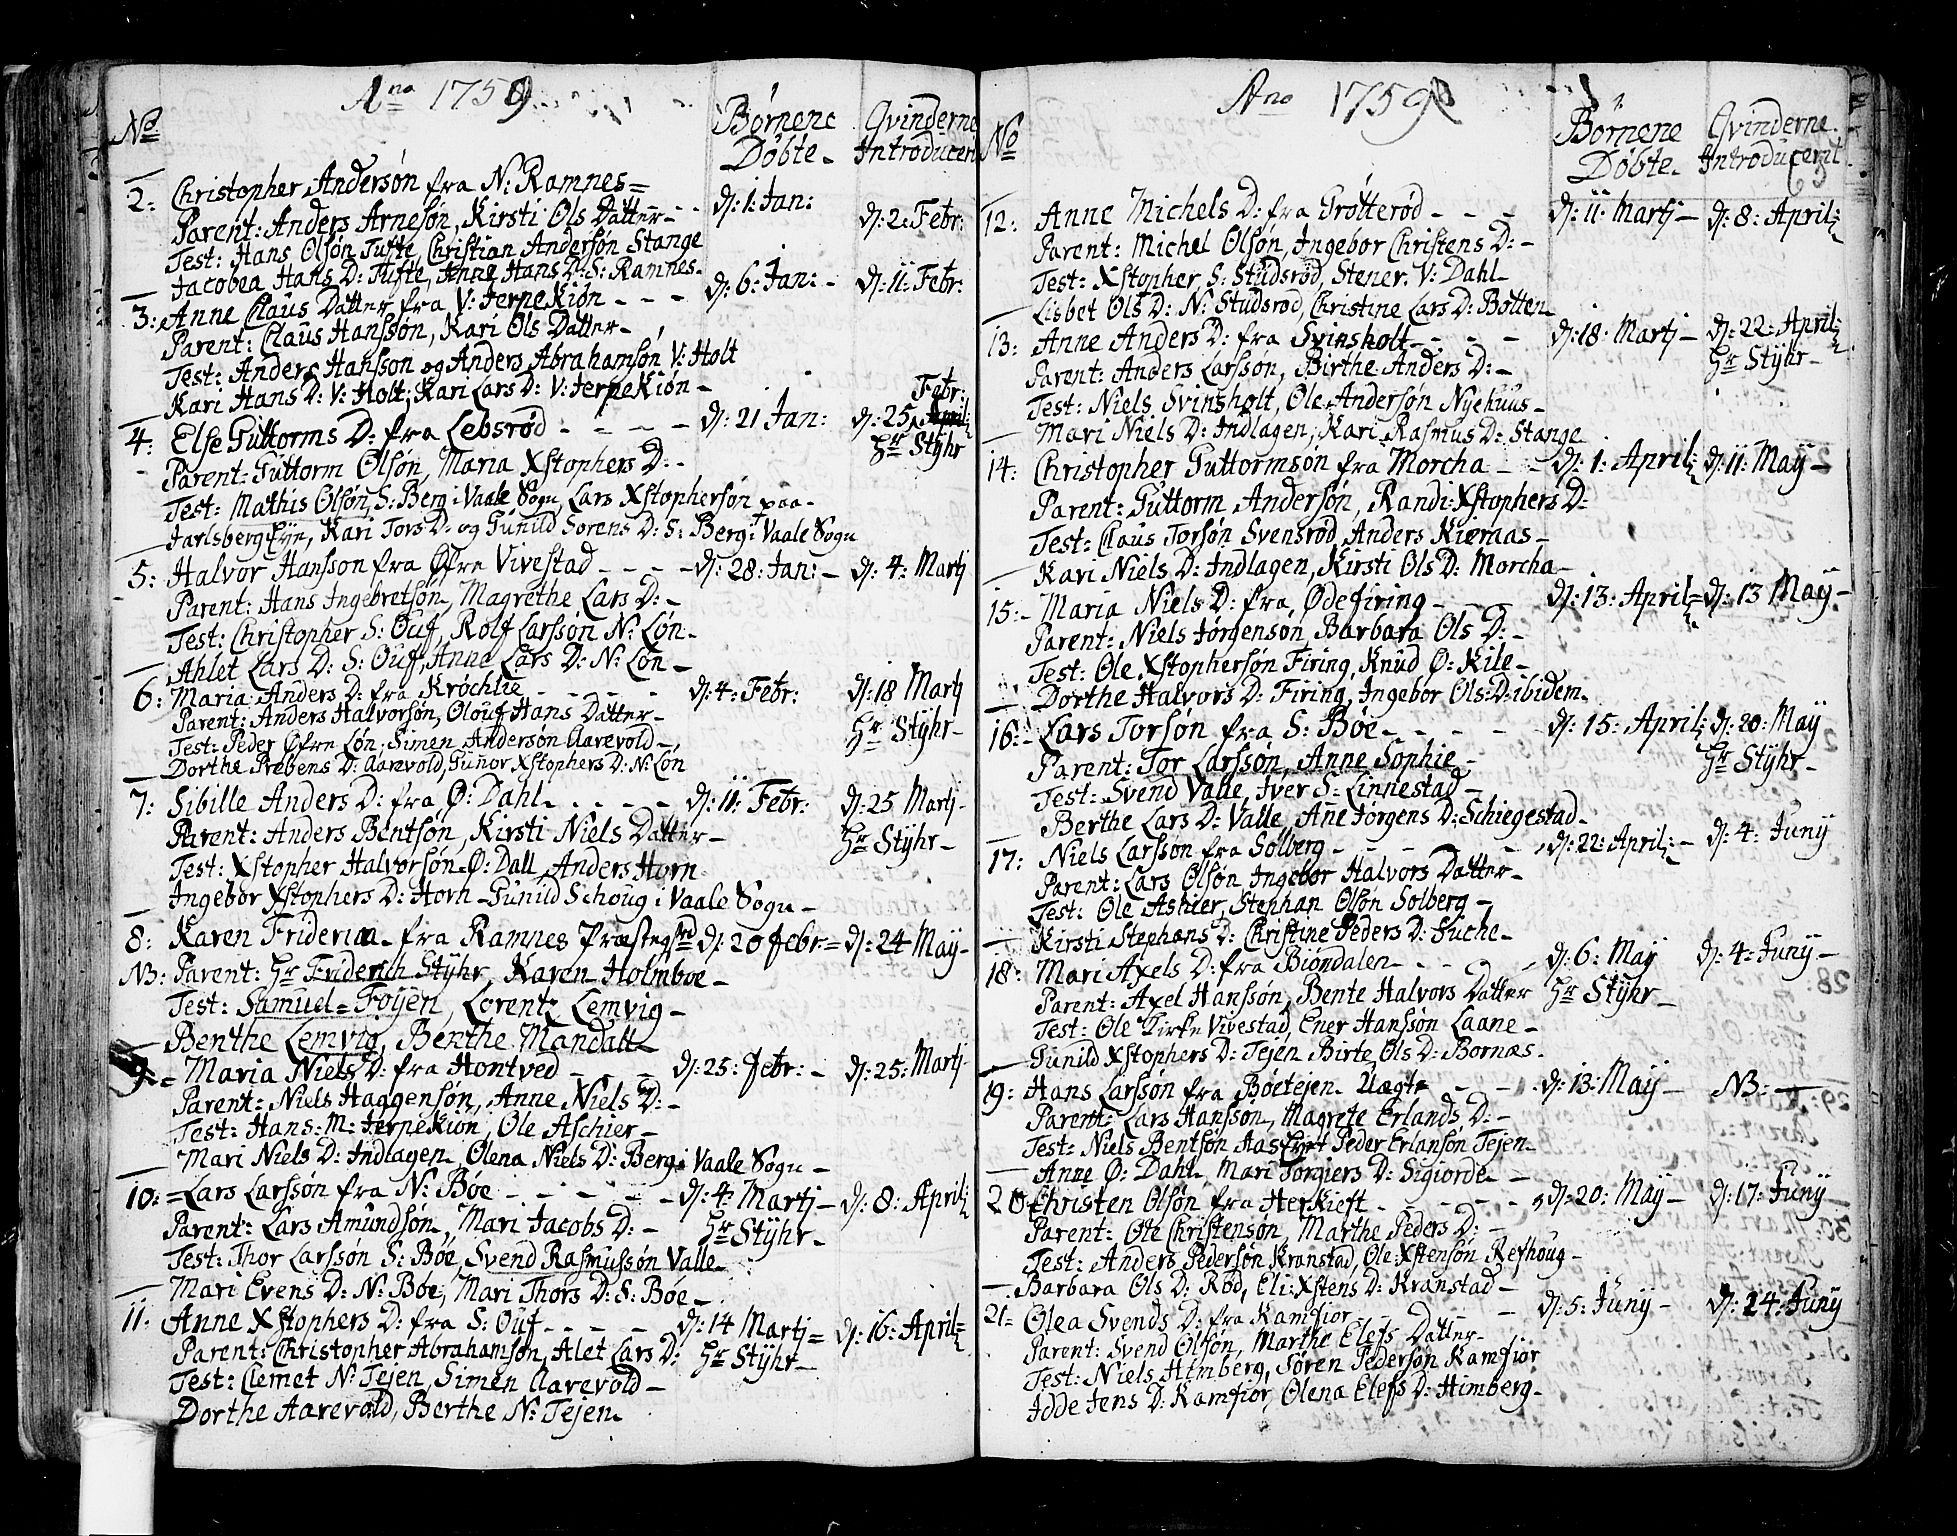 Ano 1759
No
Børnene Døbte
Qvinderne Introducert
2: Christopher Andersøn fra N: Ramnes=
d: 1: Jan:
d: 2: Febr:
Parent: Anders Arnesøn, Kirsti Ols Datter
Test: Hans Olsøn Tufte, Christian Andersøn Stange
Jacobea Hans D: Tufte, Anne Hans D: S: Ramnes
3: Anne Claus Datter fra V: Jerpekiøn
d: 6: Jan:
d: 11: Febr:
Parent: Claus Hanssøn, Kari Ols Datter
Test: Anders Hansson og Anders Abrahamsøn V: Holt
Kari Hans D: V: Holt, Kari Lars D: V: Jerpekiøn
4: Else Guttorms D: fra Lebsrød
d: 21 Jan:
d: 25 April: Febr:
Hr Stÿhr
Parent: Guttorm Olsøn, Maria Xstophers D:
Test: Mathis Olsøn S: Berg i Vaale Sogn, Lars Xstophersøn paa
Jarlsberg Eÿe, Kari Tors D: og Gunild Sorens D: S: Berg i Vaale Sogn
5: Halvor Hansson fra Øfre Vivestad
d: 28: Jan:
d: 4: Martj
Parent: Hans Ingebretsøn, Magrethe Lars D:
Test: Christopher S: Ouf, Rolf Larsson N: Løn
Ahlet Lars D: S: Ouf, Anne Lars D: N: Løn
6: Maria Anders D: fra Krøchlie
d: 4: Febr:
d: 18 Martj
Hr Stÿhr
Parent: Anders Halvorsøn, Olouf Hans Datter
Test: Peder Øfre Løn, Simen Andersøn Aarevold
Dorthe Prebens D: Aarevold, Gunor Xstophers D: N: Løn
7: Sibille Anders D: fra Ø: Dahl
d: 11: Febr:
d: 25 Martj
Hr Stÿhr
Parent: Anders Bentsøn, Kirsti Niels Datter
Test: Xstopher Halvorsøn Ø: Dall, Anders Horn
Ingebor Xstophers D: Horn Gunild Schoug i Vaale Sogn
8: Karen Friderica fra Ramnes Præstegrd
d: 20 Febr=
d: 24 May
NB: Parent: Hr Friderich Stÿhr, Karen Holmboe
Test: Samuel Foÿen, Lorentz Lemvig
Benthe Lemvig, Benthe Mandall
9: Maria Niels D: fra Hontved
d: 25: Febr:
d: 25: Martj
Parent: Niels Haggensøn, Anne Niels D:
Test: Hans M: Jerpekiøn, Ole Aschier
Mari Niels D: Indlagen, Olena Niels D: Berg i Vaale Sogn
10: Lars Larssøn fra N: Bøe
d: 4: Martj
Hr Stÿhr
d: 8: April:
Parent: Lars Amundsøn, Mari Jacobs D:
Test: Thor Larssøn S: Bøe, Svend Rasmussøn Valle
Mari Evens D: N: Bøe, Mari Thors D: S: Bøe
11: Anne Xstophers D: fra S: Ouf
d: 14 Martj=
Hr Stÿhr
d: 16: April=
Parent: Christopher Abrahamsøn, Alet Lars D:
Test: Clemet N: Tejen, Simen Aarevold
Dorthe Aarevold, Berthe N: Tejen
Ano 1759
No
Børnene Døbte
Qvinderne Introducert
12: Anne Michels D: fra Grøtterød
d: 11: Martj
d: 8: April:
Parent: Michel Olsøn, Ingebor Christens D:
Test: Xstopher S: Studsrød, Stener V: Dahl
Lisbet Ols D: N: Studsrød, Christine Lars D: Botten
13: Anne Anders D: fra Svinsholt
d: 18: Martj
d: 22: April:
Hr Stÿhr
Parent: Anders Larssøn, Birthe Anders D:
Test: Niels Svinsholt, Ole Andersøn Nyehuus
Mari Niels D: Indlagen, Kari Rasmus D: Stange
14: Christopher Guttormsøn fra Morcha
d: 1: April:
d: 11: May
Parent: Guttorm Andersøn, Randi Xstophers D:
Test: Claus Torsøn Svensrød, Anders Kiernas
Kari Niels D: Indlagen, Kirsti Ols D: Morcha
15: Maria Niels D: fra Ødefiring
d: 13: April=
d: 13 May
Parent: Niels Jørgensøn, Barbara Ols D:
Test: Ole Xstophersøn Firing, Knud Ø: Kile
Dorthe Halvors D: Firing, Ingebor Ols D: ibidem
16: Lars Torsøn fra S: Bøe
d: 15: April:
d: 20: May
Hr Stÿhr
Parent: Tor Larssøn, Anne Sophie
Test: Svend Valle, Iver S: Linnestad
Berthe Lars D: Valle, Ane Jørgens D: Schiegestad
17: Niels Larsson fra Solberg
d: 22: April:
d: 4: Juny
Parent: Lars Olsøn, Ingebor Halvors Datter
Test: Ole Ashier, Stephan Olsøn Solberg
Kirsti Stephans D: Christine Peders D: Fuche
18: Mari Axels D: fra Biondalen
d: 6: May
Hr Stÿhr
d: 4: Juny
Parent: Axel Hanssøn, Bente Halvors Datter
Test: Ole Kirke Vivestad, Ener Hanssøn Laane
Gunild Xstophers D: Tejen, Birte Ols D: Bornæs
19: Hans Larssøn fra Bøetejen Uægte
d: 13: May
NB:
Parent: Lars Hansson, Magrete Erlands D:
Test: Niels Bentsøn Aas Eyet Peder Erlansøn Tejen
Anne Ø: Dahl, Mari Torgiers D: Sigiorde
20 Christen Olsøn fra Herkieft
d: 20: May
d: 17: Juny
Parent: Ole Christensøn, Marthe Peders D:
Test: Anders Pedersøn Kranstad, Ole Xstensøn Refhoug
Barbara Ols D: Rød, Eli Xstens D: Kranstad
21 Olea Svends D: fra Kamfior
d: 5: Juny
d: 24: Juny
Parent: Svend Olsøn, Marthe Elefs Datter
Test: Niels Himberg, Søren Pederson Kamfior
Idde Jens D: Kamfior, Olena Elefs D: Himberg